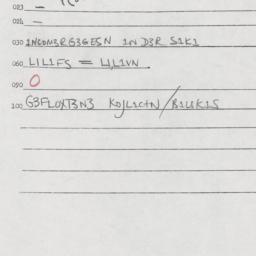 023 –
024 –
030 1NCON3RG3GESN 1N D3R S1K1
060 L1L1FS = L1L1VN
090 O
100 G3FLOXT3N3 KOJL1C1N/B1UK1S